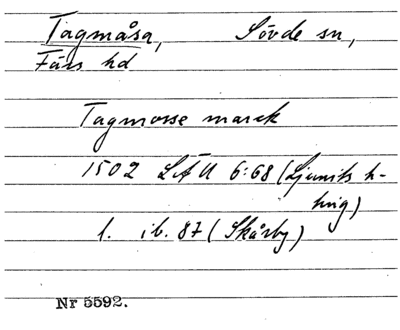 Tagmåsa, Sövde sn,
Färs hd
Tagmosse marck
1502 LÄU 6:68 (Ljunits h-
ting)
l. ib. 87 (Skårby)
Nr 5592.